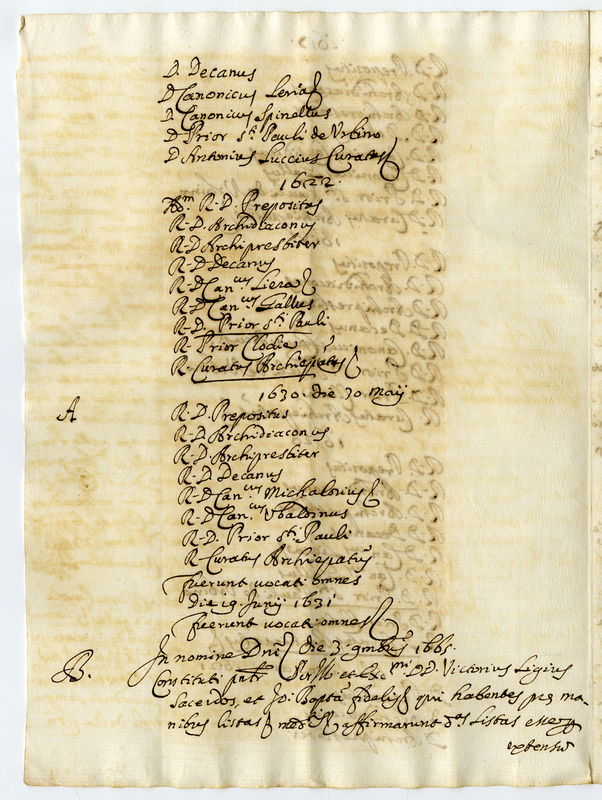 D. Decanus
D Canonicus Leria
D Canonicus Spinellus
D Prior sti Pauli de Urbino
D Antonius Luccius Curatus
1622.
Adm. R. D. Prepositus
R. D. Archidiaconus
R. D Archipresbiter
R. D Decanus
R. D Can.cus Liera
R. D Can.cus Gallus
R. D. Prior sti Pauli
R. Prior Clodie
R. Curatus Archiepatus
1630. die 30 maij
A
R. D. Prepositus
R. D. Archidiaconus
R. D. Archipresbiter
R. D Decanus
R. D Can.cus Michalorius
R. D Can.cus Ubaldinus
R. D. Prior sti Pauli
R. Curatus Archiepatus
Fuerunt vocati omnes
Die 19 Junij 1631
Fuerunt vocati omnes
In nomine Dni die 3 9mbris 1661.
B.
Constituti et Exc.mi DD. Victorius Ligius
Sacerdos, et Jo: Bapta fidelis qui habentes per ma-
nibus listas affirmarunt listas
extensu